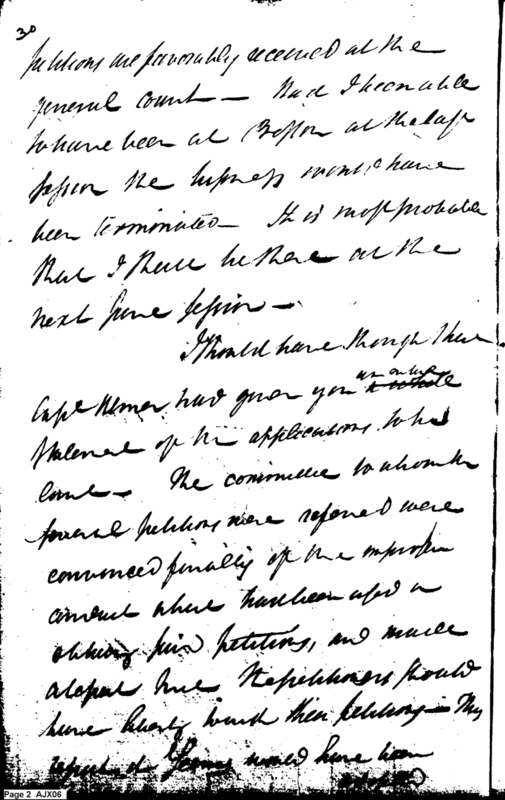 30
petitions are favorably received at the
general court — Had I been able
to have been at Boston at the last
session the business would have
been terminated — It is most probable
that I shall be there at the
next June session —
I should have thought that
Capt had given you an entire
statement of the applications to the
Court — The committee to whom the
several petitions were referred were
convinced finally of the improper
conduct which had been used in
obtaining said petitions, and made
a report that the petitioners should
have liberty to their petitions — This
report it seems would have been
Page 2 AJX06